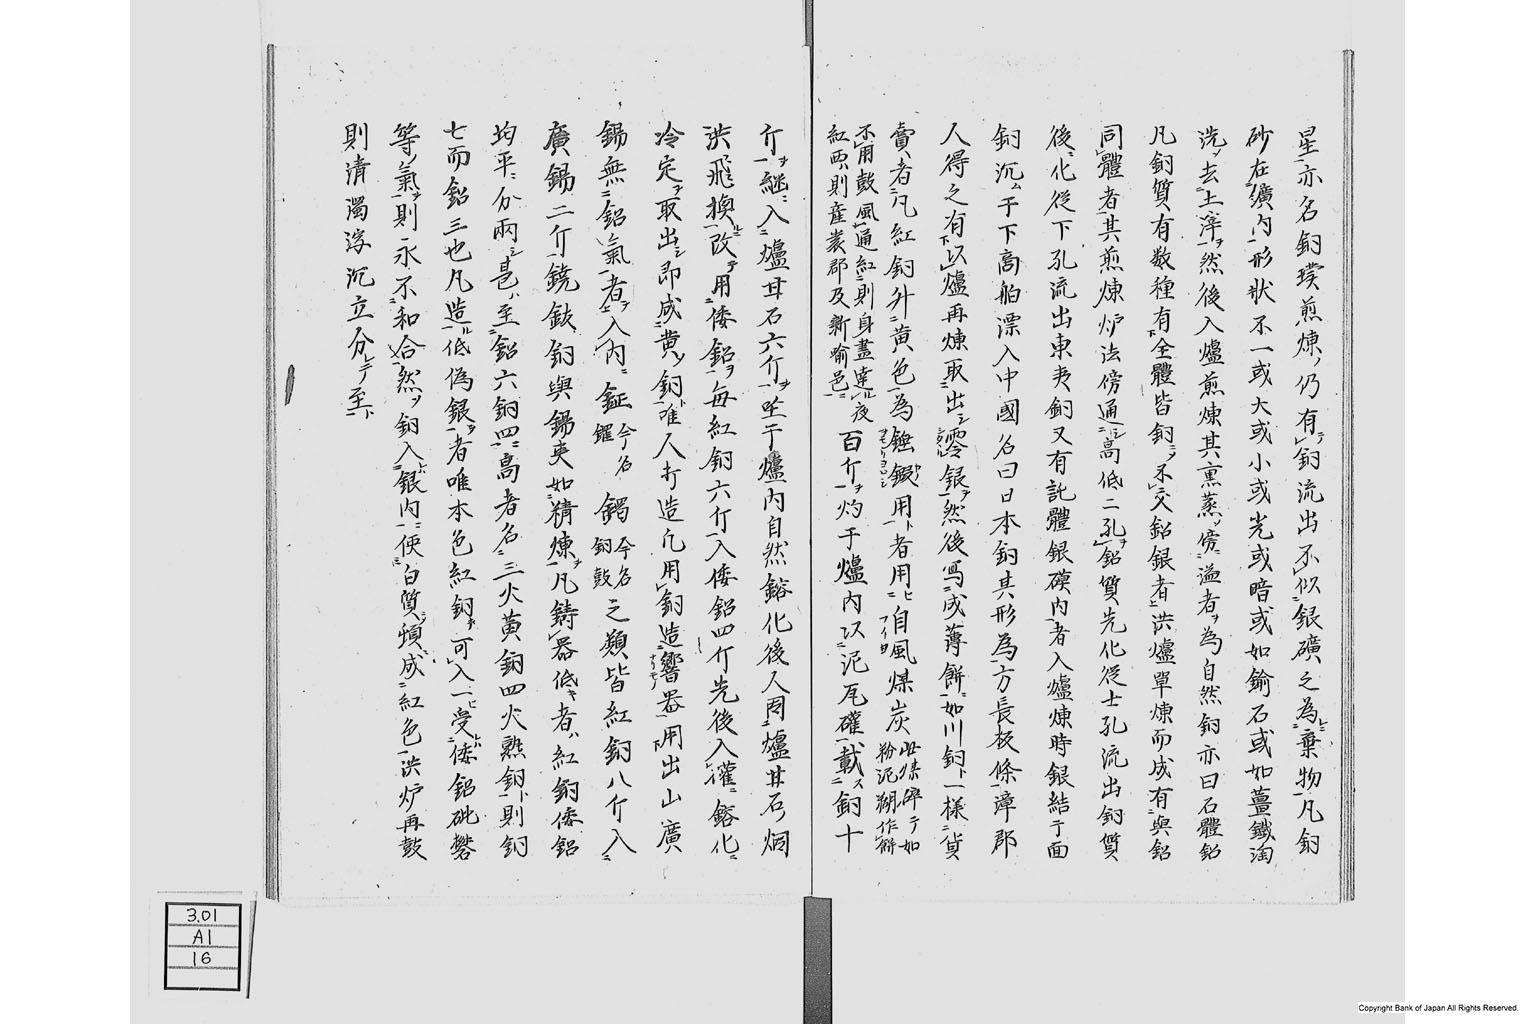 星亦名銅璞煎煉ノ仍有テ銅流出不似銀礦之為棄物凡銅
砂在礦内形状不一或大或小或光或暗或如鍮石或如薑鐵淘
洗ノ去土滓ヲ然後入爐煎煉其熏蒸ノ傍ニ溢者ヲ為自然銅亦曰石體鉛
凡銅質有数種有全體皆銅ニノ不交鉛銀者洪爐單煉而成有與鉛
同體者其煎煉炉法傍通高低二孔ヲ鉛質先化從士孔流出銅質
後ニ化從下孔流出東夷銅又有託體銀礦内者入爐煉時銀結于面
銅沉ム于下商舶漂入中國名曰日本銅其形為方長板條漳郡
人得之有以爐再煉取出シ零銀ヲ然後寫成薄餅如川銅ト一様ニ貨
賣者凡紅銅升黄色為錘鍛用ト者用自風煤炭此煤碎テ如粉泥糊作餅
不用鼓風通紅則身晝達夜紅西則産袁郡及新喩邑百斤灼于爐内以泥瓦確載ス銅十
斤ヲ継入爐甘石六斤ヲ坐于爐内自然鎔化後人因爐甘石烟
洪飛換改テ用倭鉛ヲ毎紅銅六斤入倭鉛四斤先後入確鎔化
冷定ヲ取出シ即成黄銅唯人打造凡用銅造響器用出山廣
錫無鉛氣者ヲ入内ニ鉦今名鑼鐲今名銅鼓之類皆紅銅八斤入
廣錫二斤鐃鈸銅與錫更加精煉ヲ凡鋳器低キ者ハ紅銅倭鉛
均平分兩シ甚ハ至鉛六銅四高者名三火黄銅四火熟銅ト則銅
七而鉛三也凡造低偽銀ヲ者唯本色紅銅可入一受倭鉛砒礬
等氣則永不和合然銅入銀内使白質頓成紅色洪炉再鼓
則清濁浮沉立分テ至
3.01
A1
16
Copyright Bank of Japan All Rights Reserved.